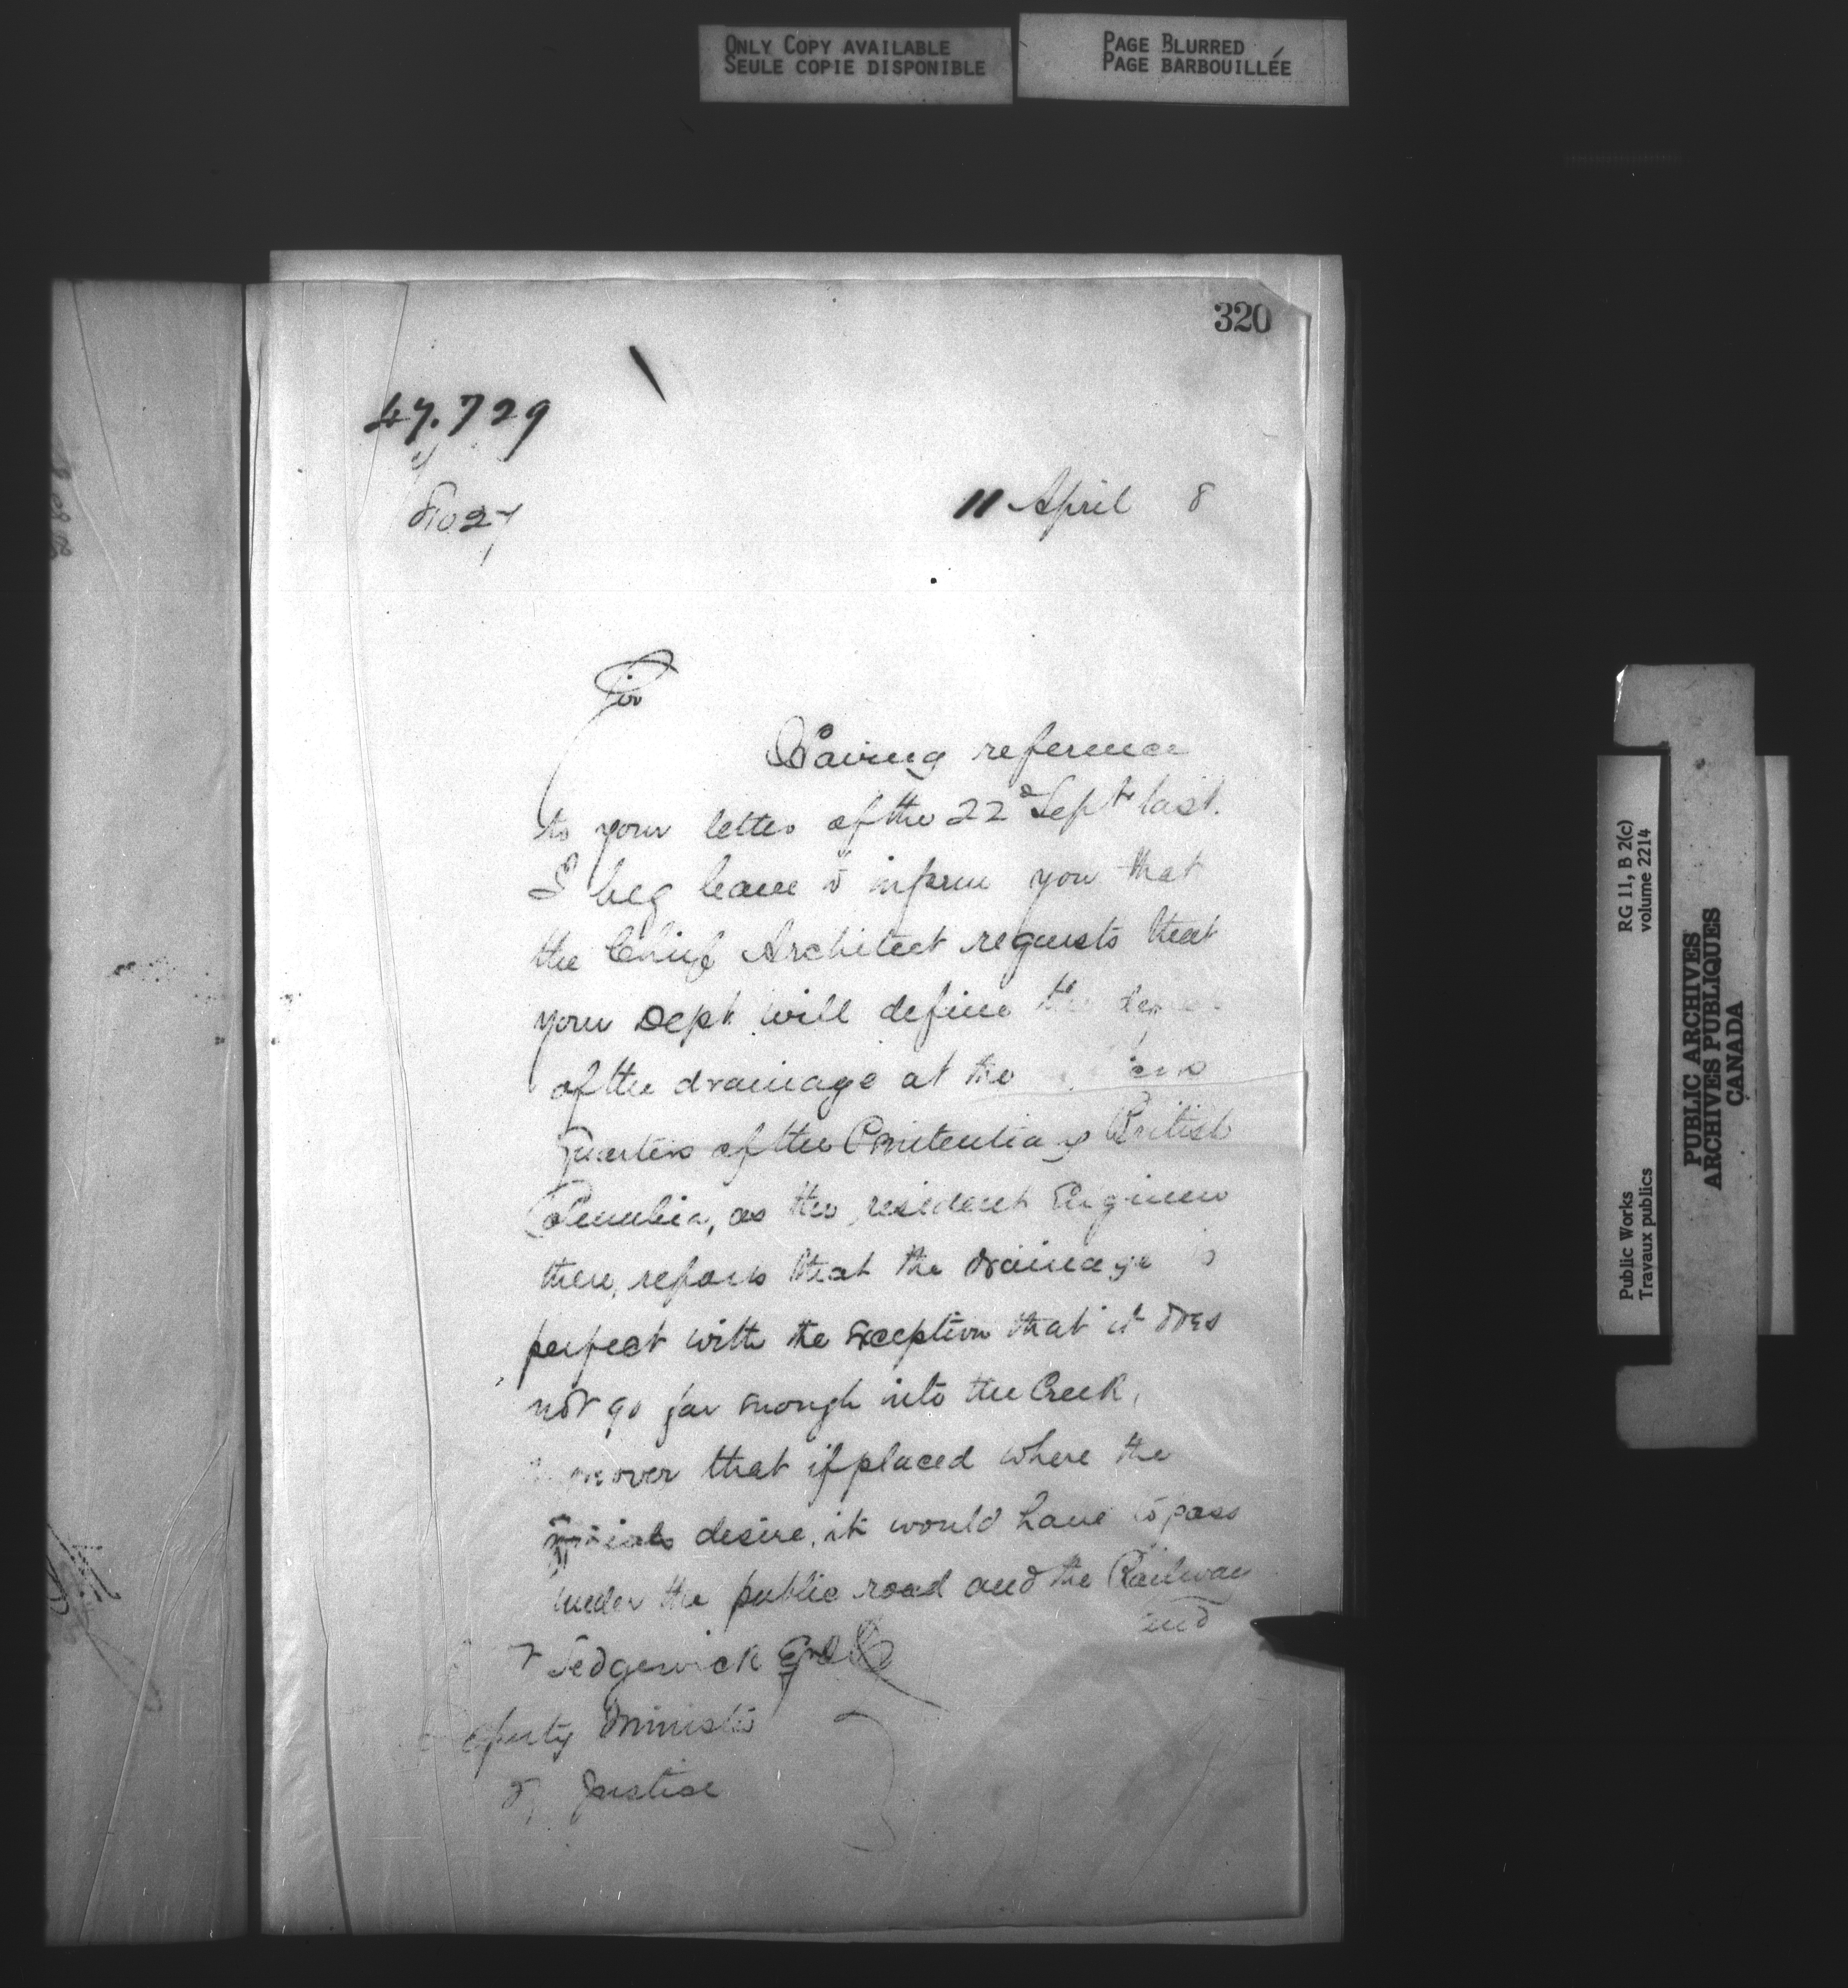 ONLY COPY AVAILABLE
SEULE COPIE DISPONIBLE
PAGE BLURRED
PAGE BARBOUILLÉE
320
47.729
11 April 8
Sir
Having reference
to your letter of the 22d Septr last.
I beg leave to inform you that
the Chief Architect requests that
your Dept. will define the
of the drainage at the
Quarters of the Penitentiary British
Columbia, as the resident Engineer
there, reports that the drainage is
perfect with the exception that it does
not go far enough into the Creek,
moreover that if placed where the
officials desire, it would have to pass
under the public road and the Railway
and
Sedgewick Esq
Deputy Minister
of Justice
RG 11, B 2(c)
volume 2214
Public Works
Travaux publics
PUBLIC ARCHIVES
ARCHIVES PUBLIQUES
CANADA